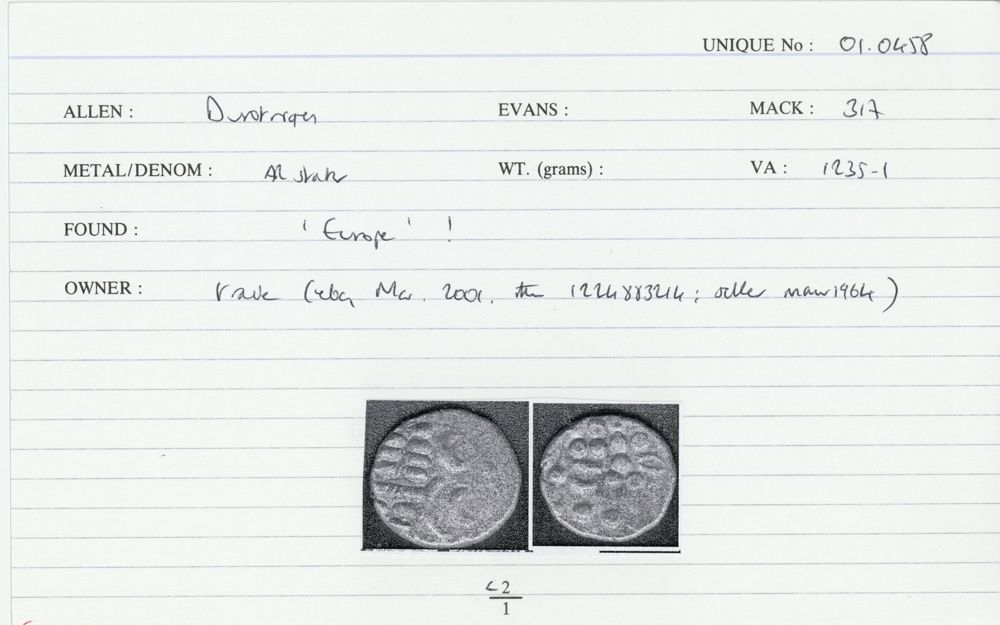 UNIQUE No : 01.0458
ALLEN : Durotriges EVANS : MACK : 317
METAL/DENOM : AR stater WT. (grams) : VA : 1235-1
FOUND : 'Europe' !
OWNER : trade (ebay Mar. 2001, item 1224883214; seller maw1964)
2
1